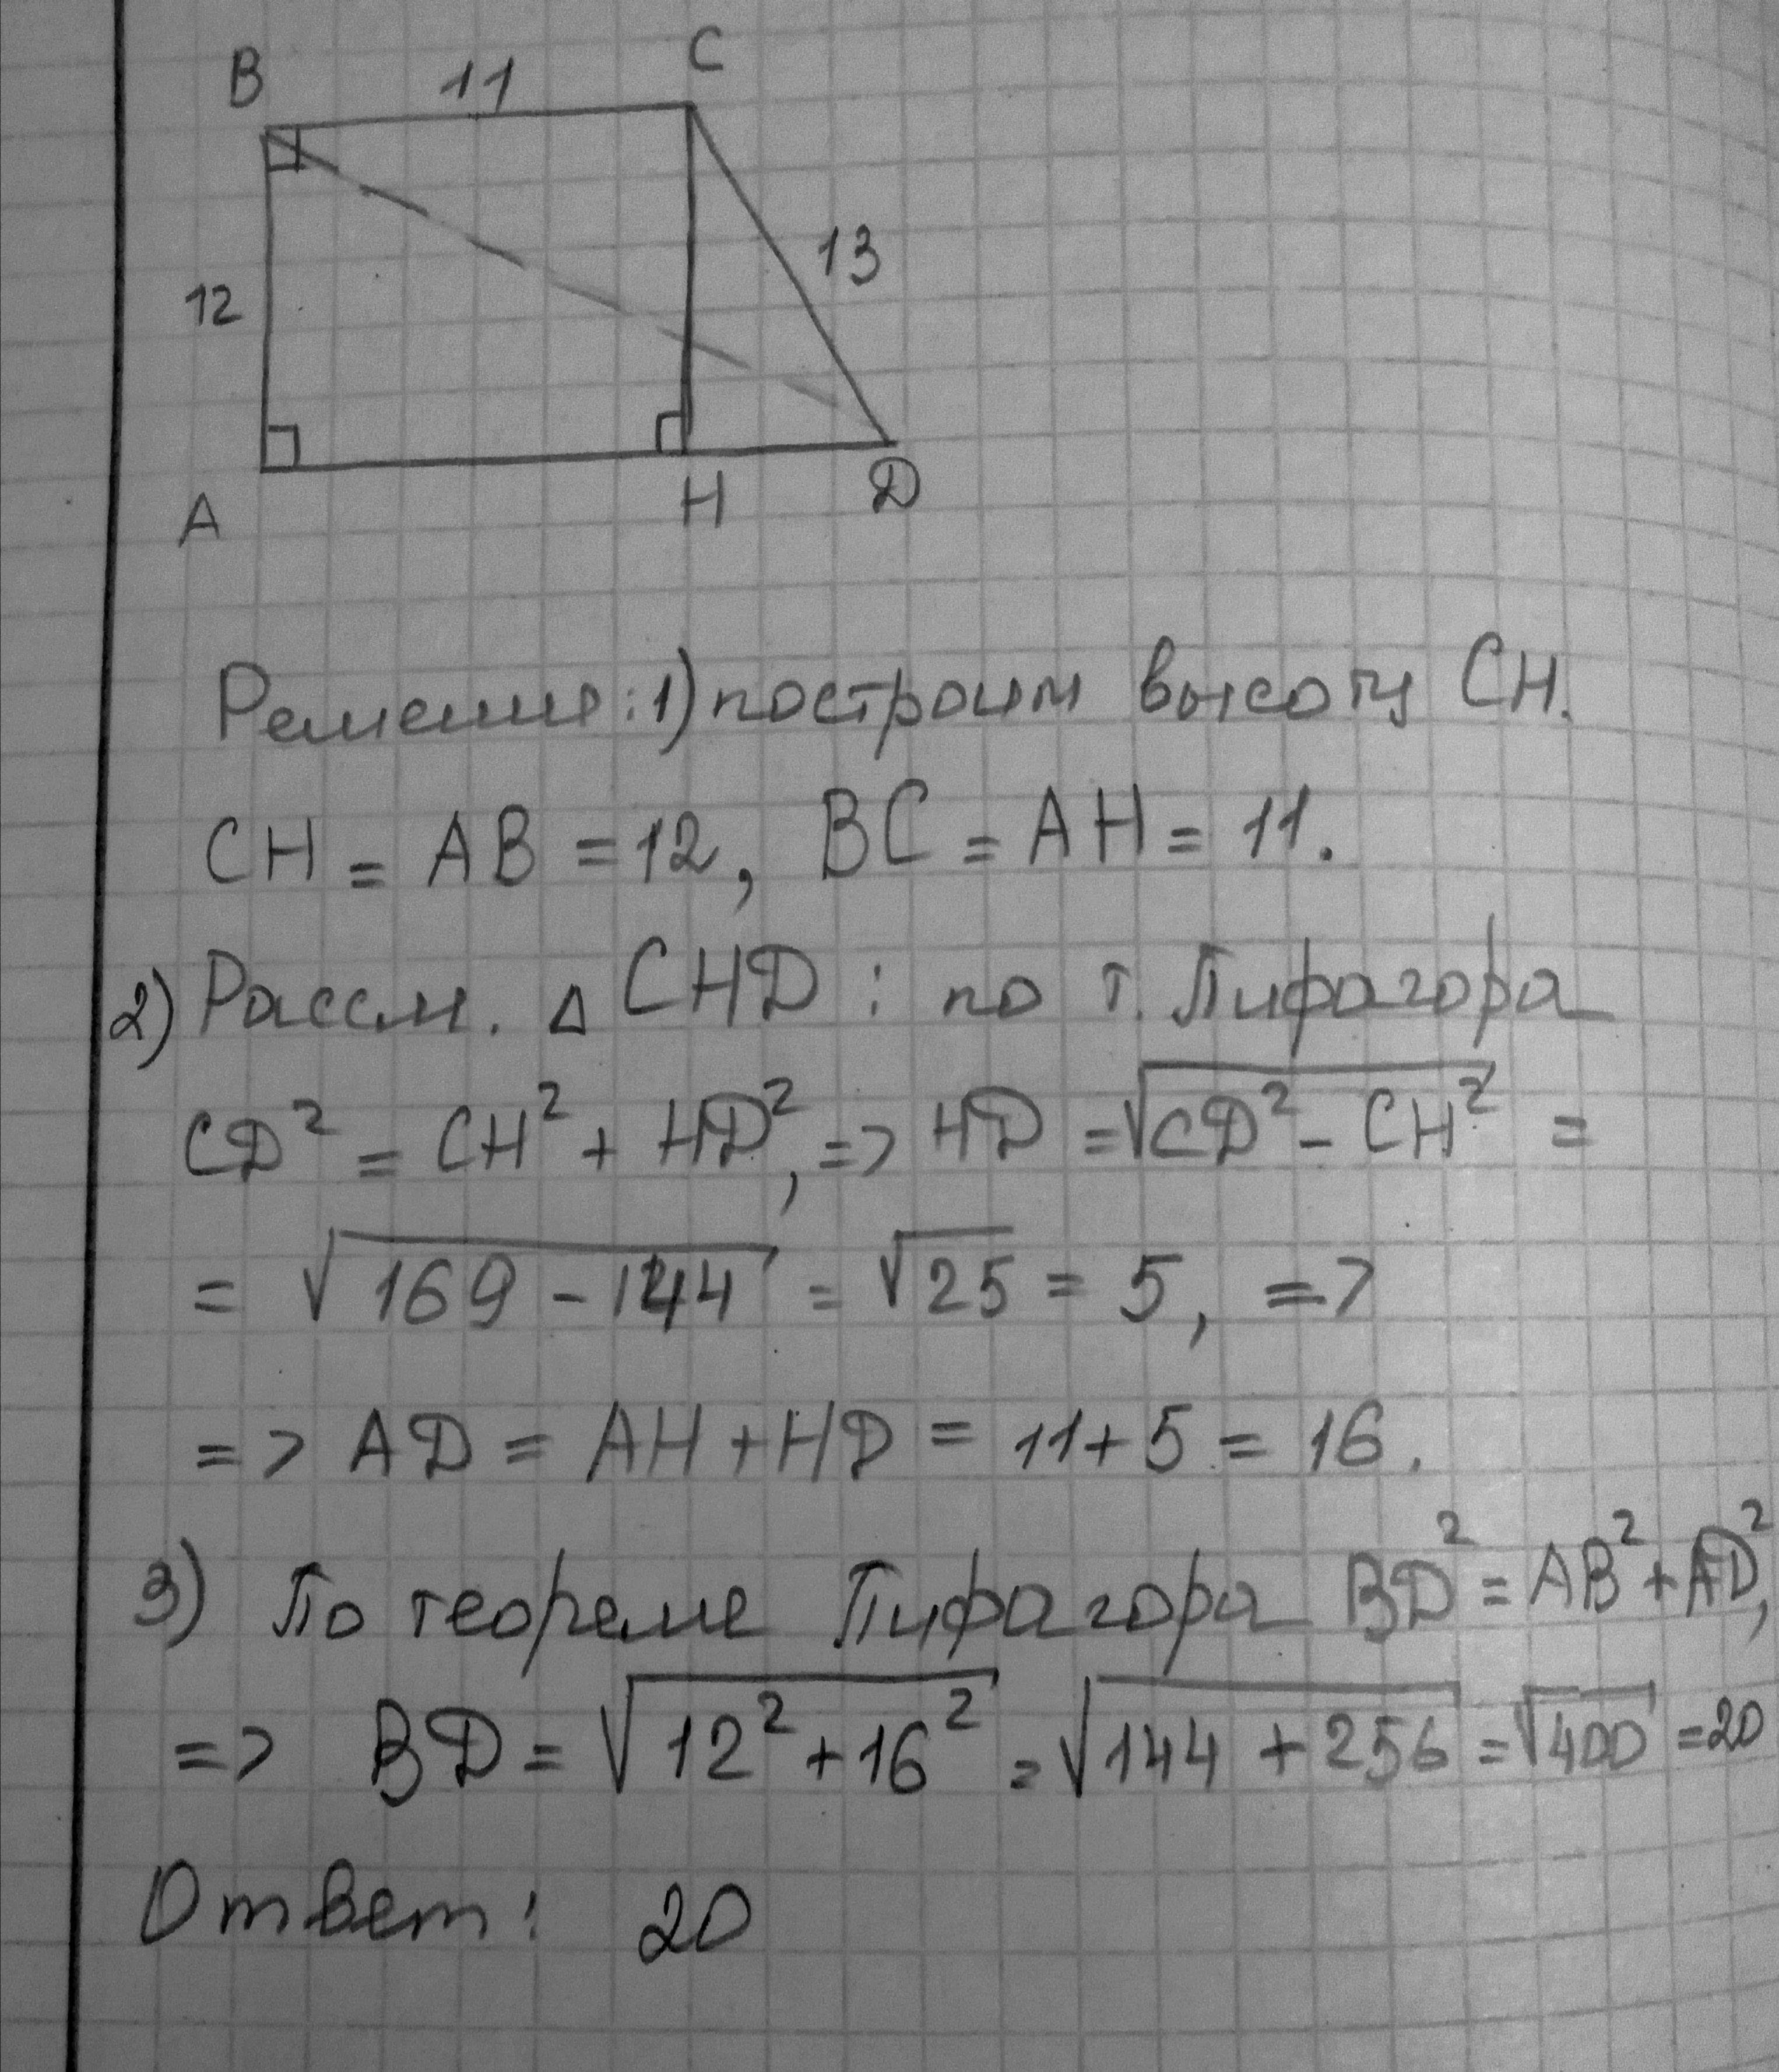 B 11 C
12 13
A H D
Решение: 1) построим высоту CH.
CH = AB = 12, BC = AH = 11.
2) Рассм. △ CHD : по т. Пифагора
CD² = CH² + HD², => HD = √(CD² - CH²) =
= √(169 - 144) = √25 = 5, =>
=> AD = AH + HD = 11 + 5 = 16.
3) По теореме Пифагора BD² = AB² + AD²,
=> BD = √(12² + 16²) = √(144 + 256) = √400 = 20
Ответ: 20